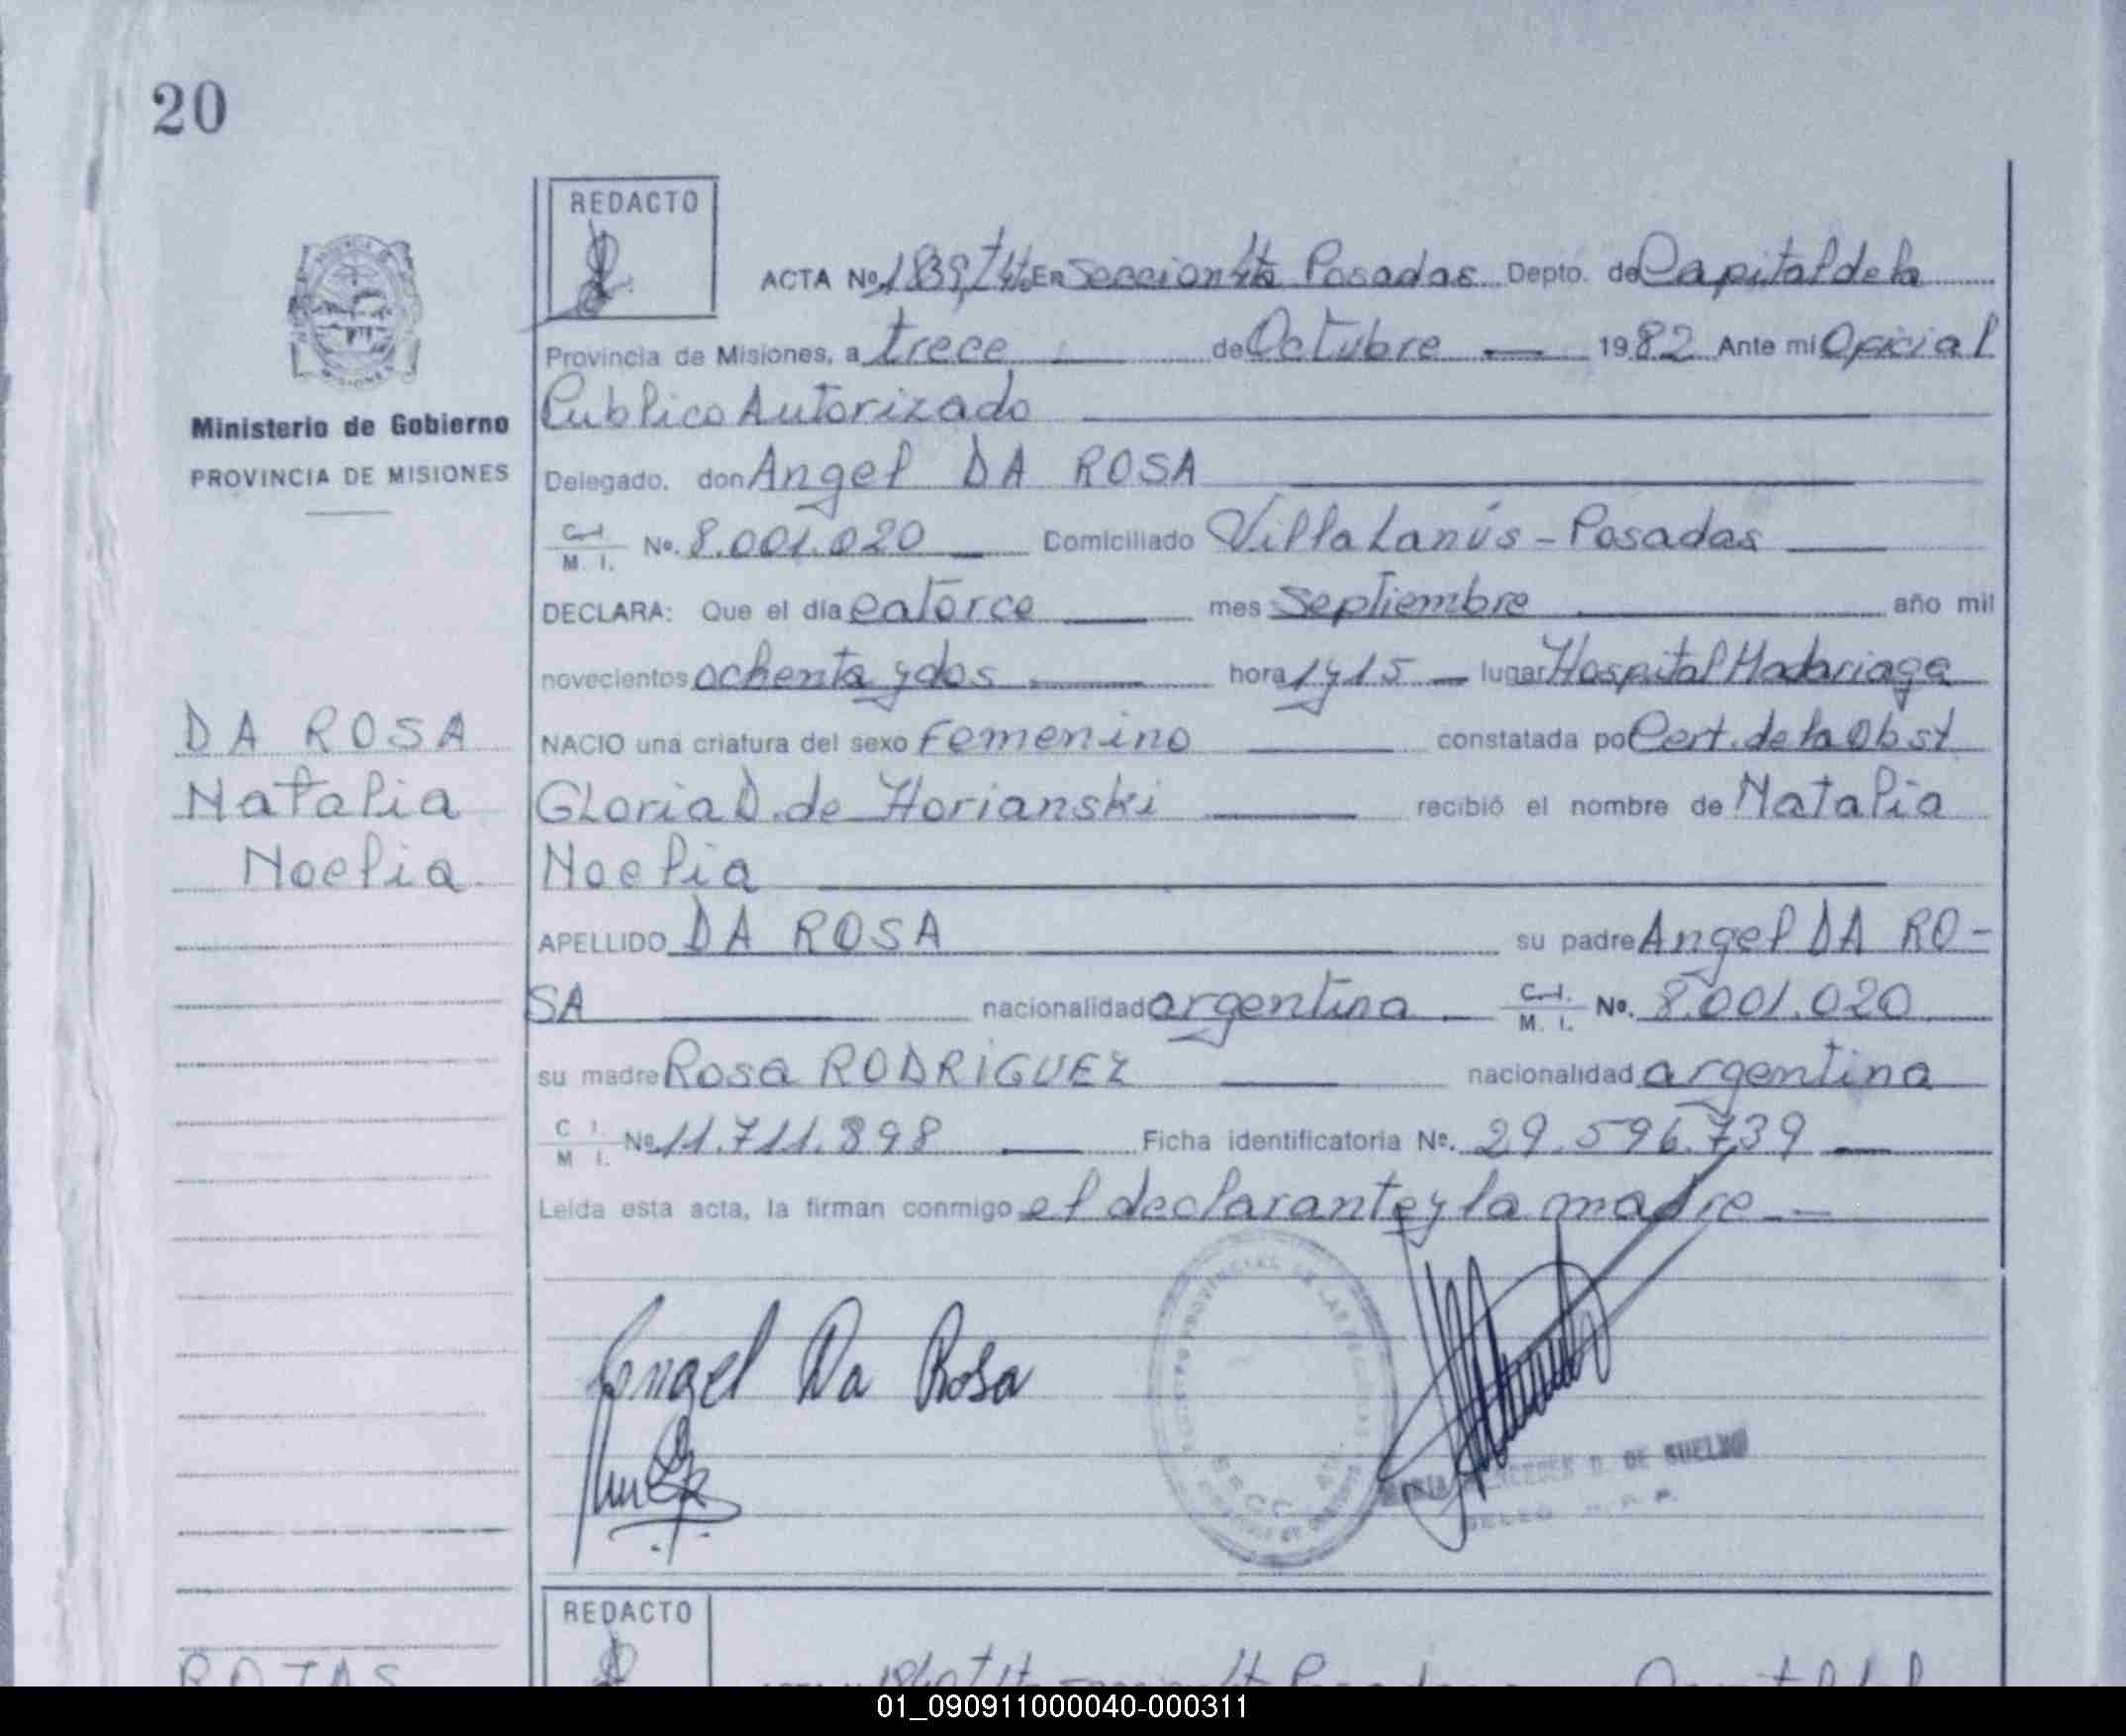 20
REDACTO
ACTA No. 1839, T 4to. EN Seccion 4ta Posadas Depto. de Capital de la
Provincia de Misiones, a trece de Octubre 1982 Ante mi Oficial
Publico Autorizado
Ministerio de Gobierno
PROVINCIA DE MISIONES
Delegado, don Angel DA ROSA
C.I. M. I. No. 8.001.020 Domiciliado Villa Lanús - Posadas
DECLARA: Que el día catorce mes Septiembre año mil
novecientos ochenta y dos hora 1 y 15 lugar Hospital Madariaga
DA ROSA
NACIO una criatura del sexo Femenino constatada po Cert. de la Obst
Natalia
Gloria D. de Horianski recibió el nombre de Natalia
Noelia
Noelia
APELLIDO DA ROSA su padre Angel DA RO-
SA nacionalidad argentina C.I. M. I. No. 8.001.020
su madre Rosa RODRIGUEZ nacionalidad argentina
C I. M I. No 11.711.898 Ficha identificatoria No. 29.596.739
Leída esta acta, la firman conmigo el declarante y la madre
Angel Da Rosa
D. DE
REDACTO
ROJAS
01_090911000040-000311